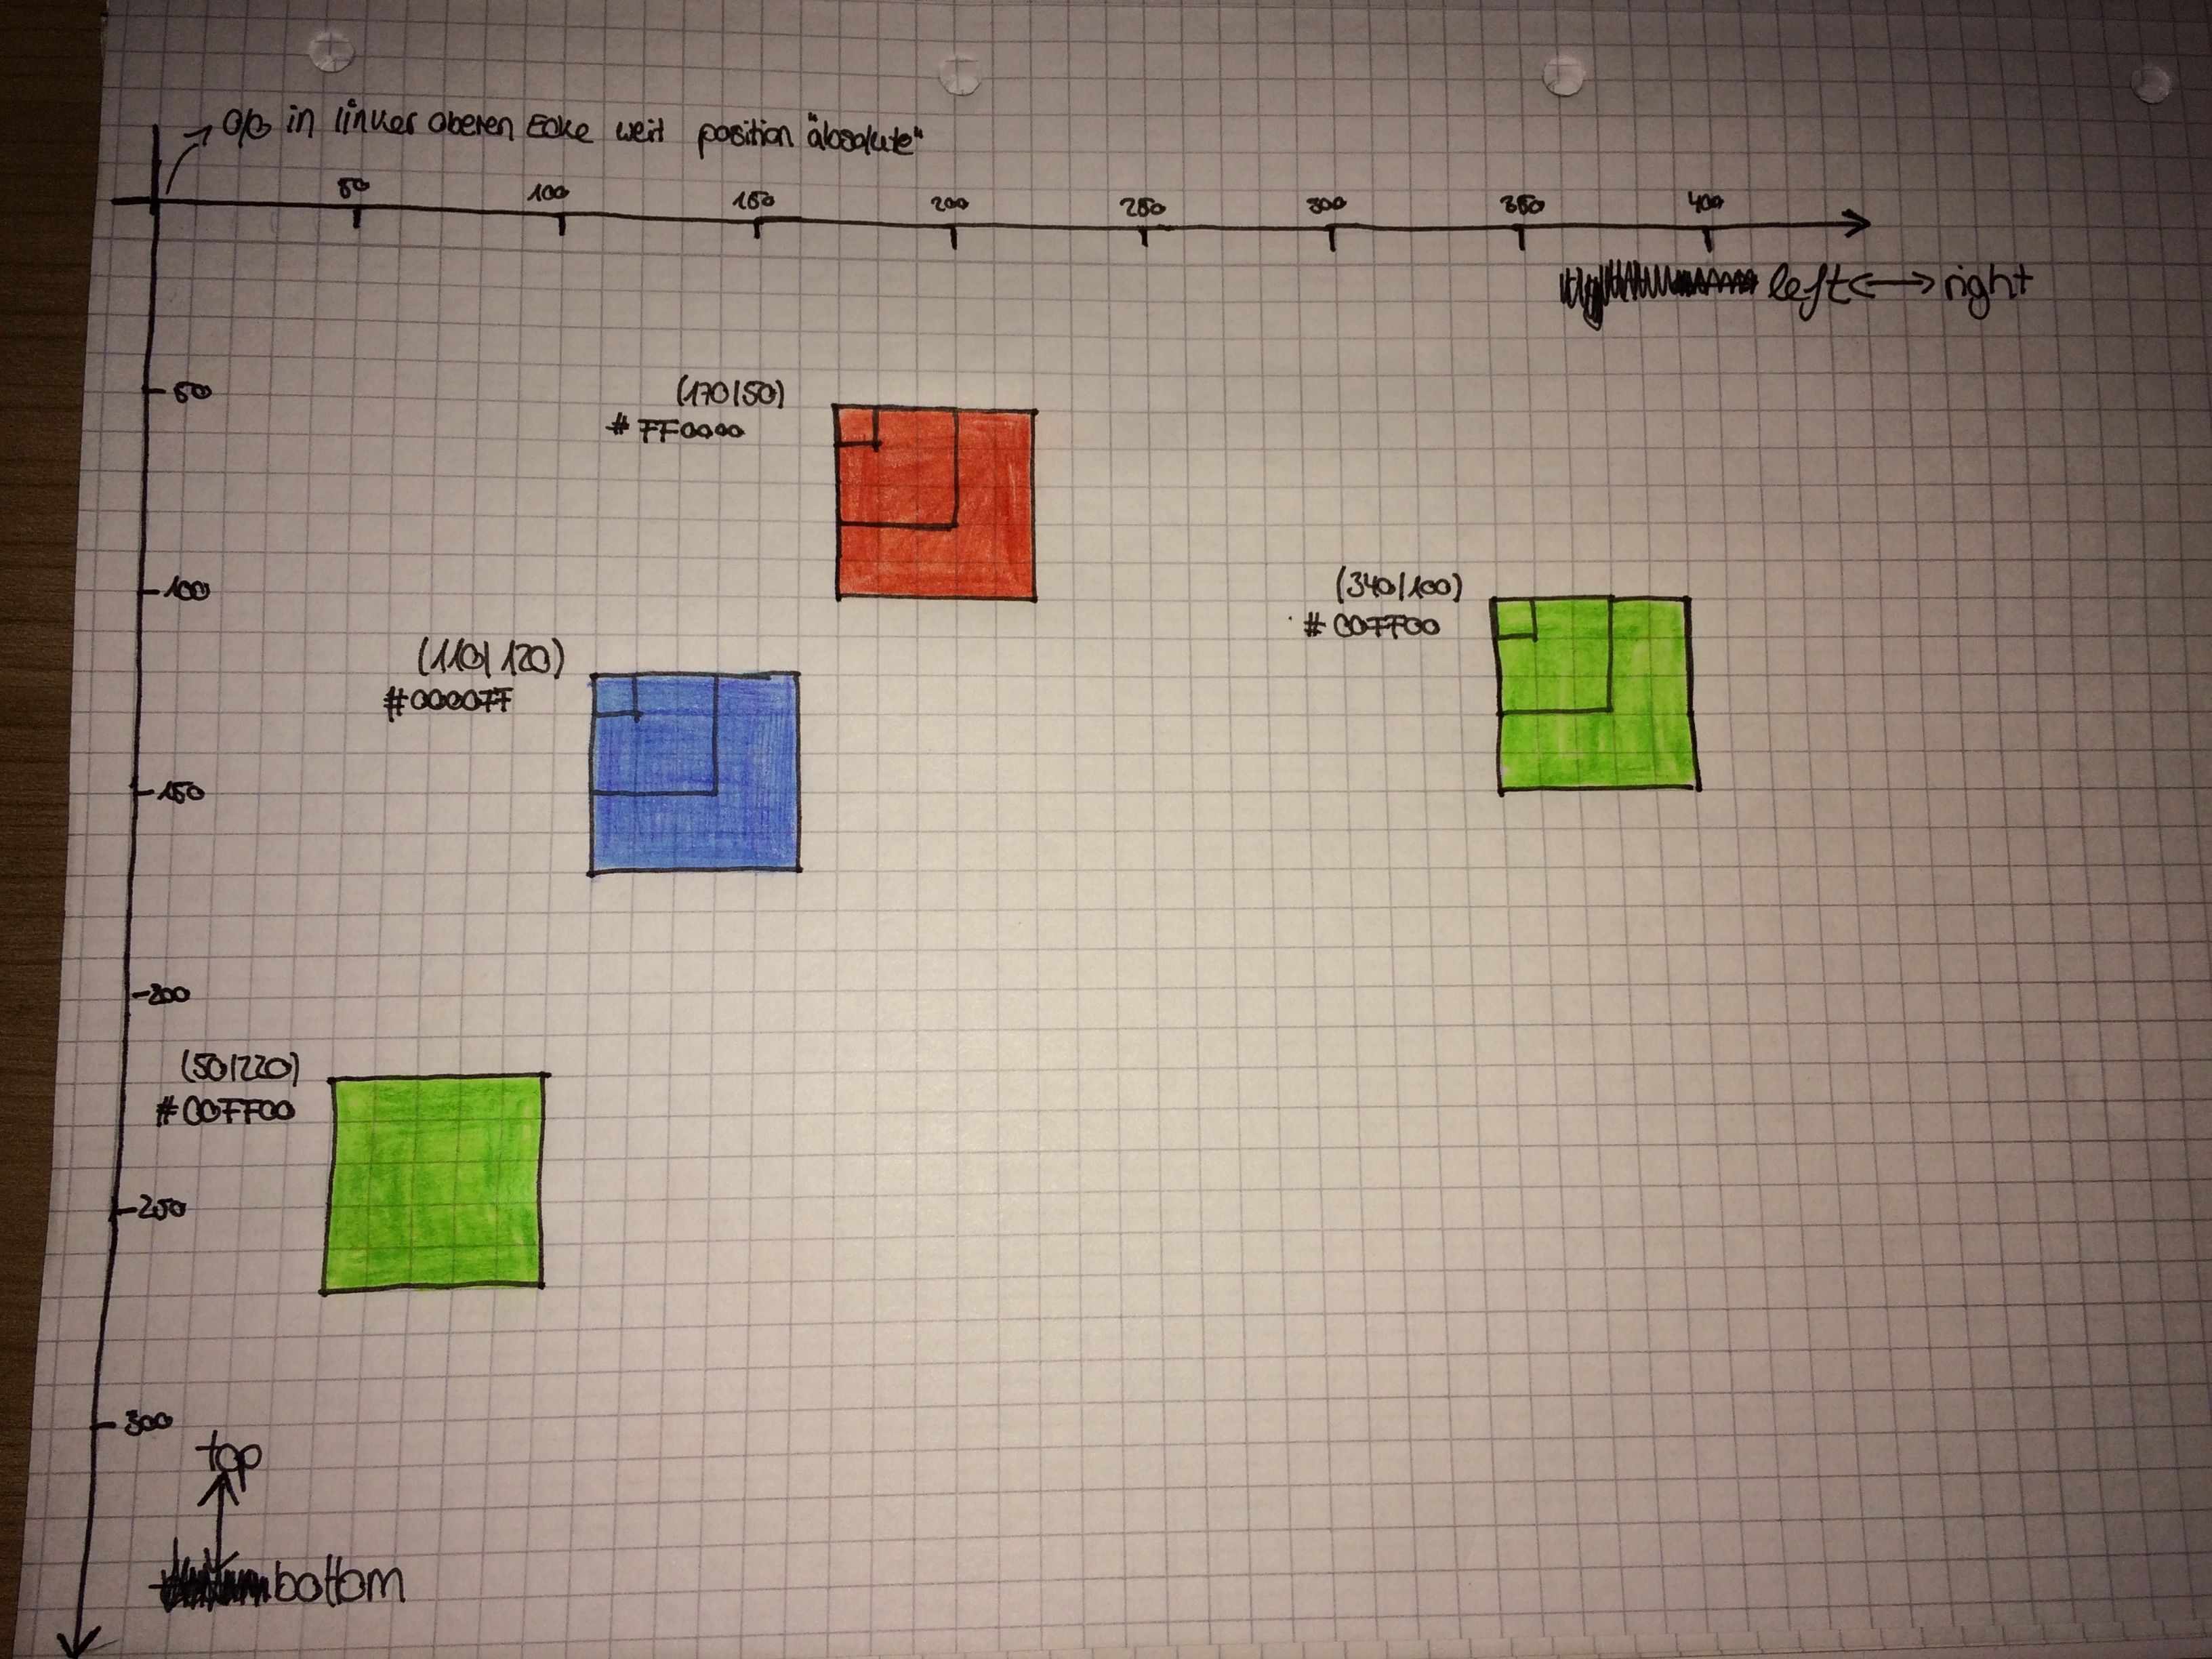 0/0 in linker oberen Ecke weil position "absolute"
50 100 150 200 250 300 350 400
left <-> right
50
(170/50)
#FF0000
100
(340/100)
#00FF00
(110/120)
#0000FF
150
200
(50/220)
#00FF00
250
300
top
bottom